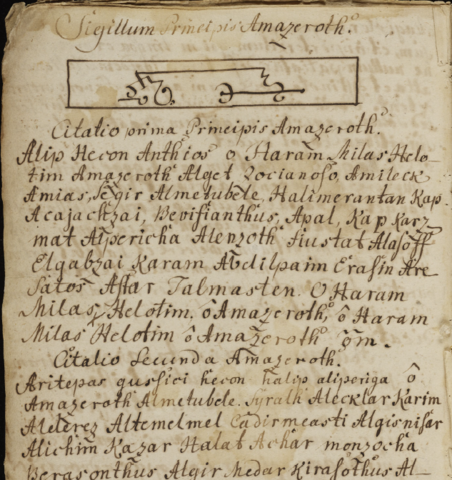 Sigillum Principis Amazeroth.
Citatio prima Principis Amazeroth.
Alip Hecon Anthios ô Haram Milas Helo-
tim Amazeroth Alget Zocianoso, Amileck
Amias, Segir Almetubele, Halimerantan Kap
Acajackzai, Berifianthus, Apal, Kap Karz
mat Aisericha Alenzoth Hustat Alasoff
Elgabzai Karam Abdilpaim Erasin Are
Satos Astar Talmasten. O Haram
Milas Helotim, ô Amazeroth, ô Haram
Milas Helotim ô Amazeroth om.
Citatio Secunda Amazeroth.
Aritepas gusfici hecon halip aliporiga ô
Amazeroth Almetubele. Syralh Alecklar Karim
Aleterez Altemelmel Cadirmeasti Algisnisar
Alichim Kazar Halat Achar monzocha
Berasonthus Algir Medar Kirasothus Al-